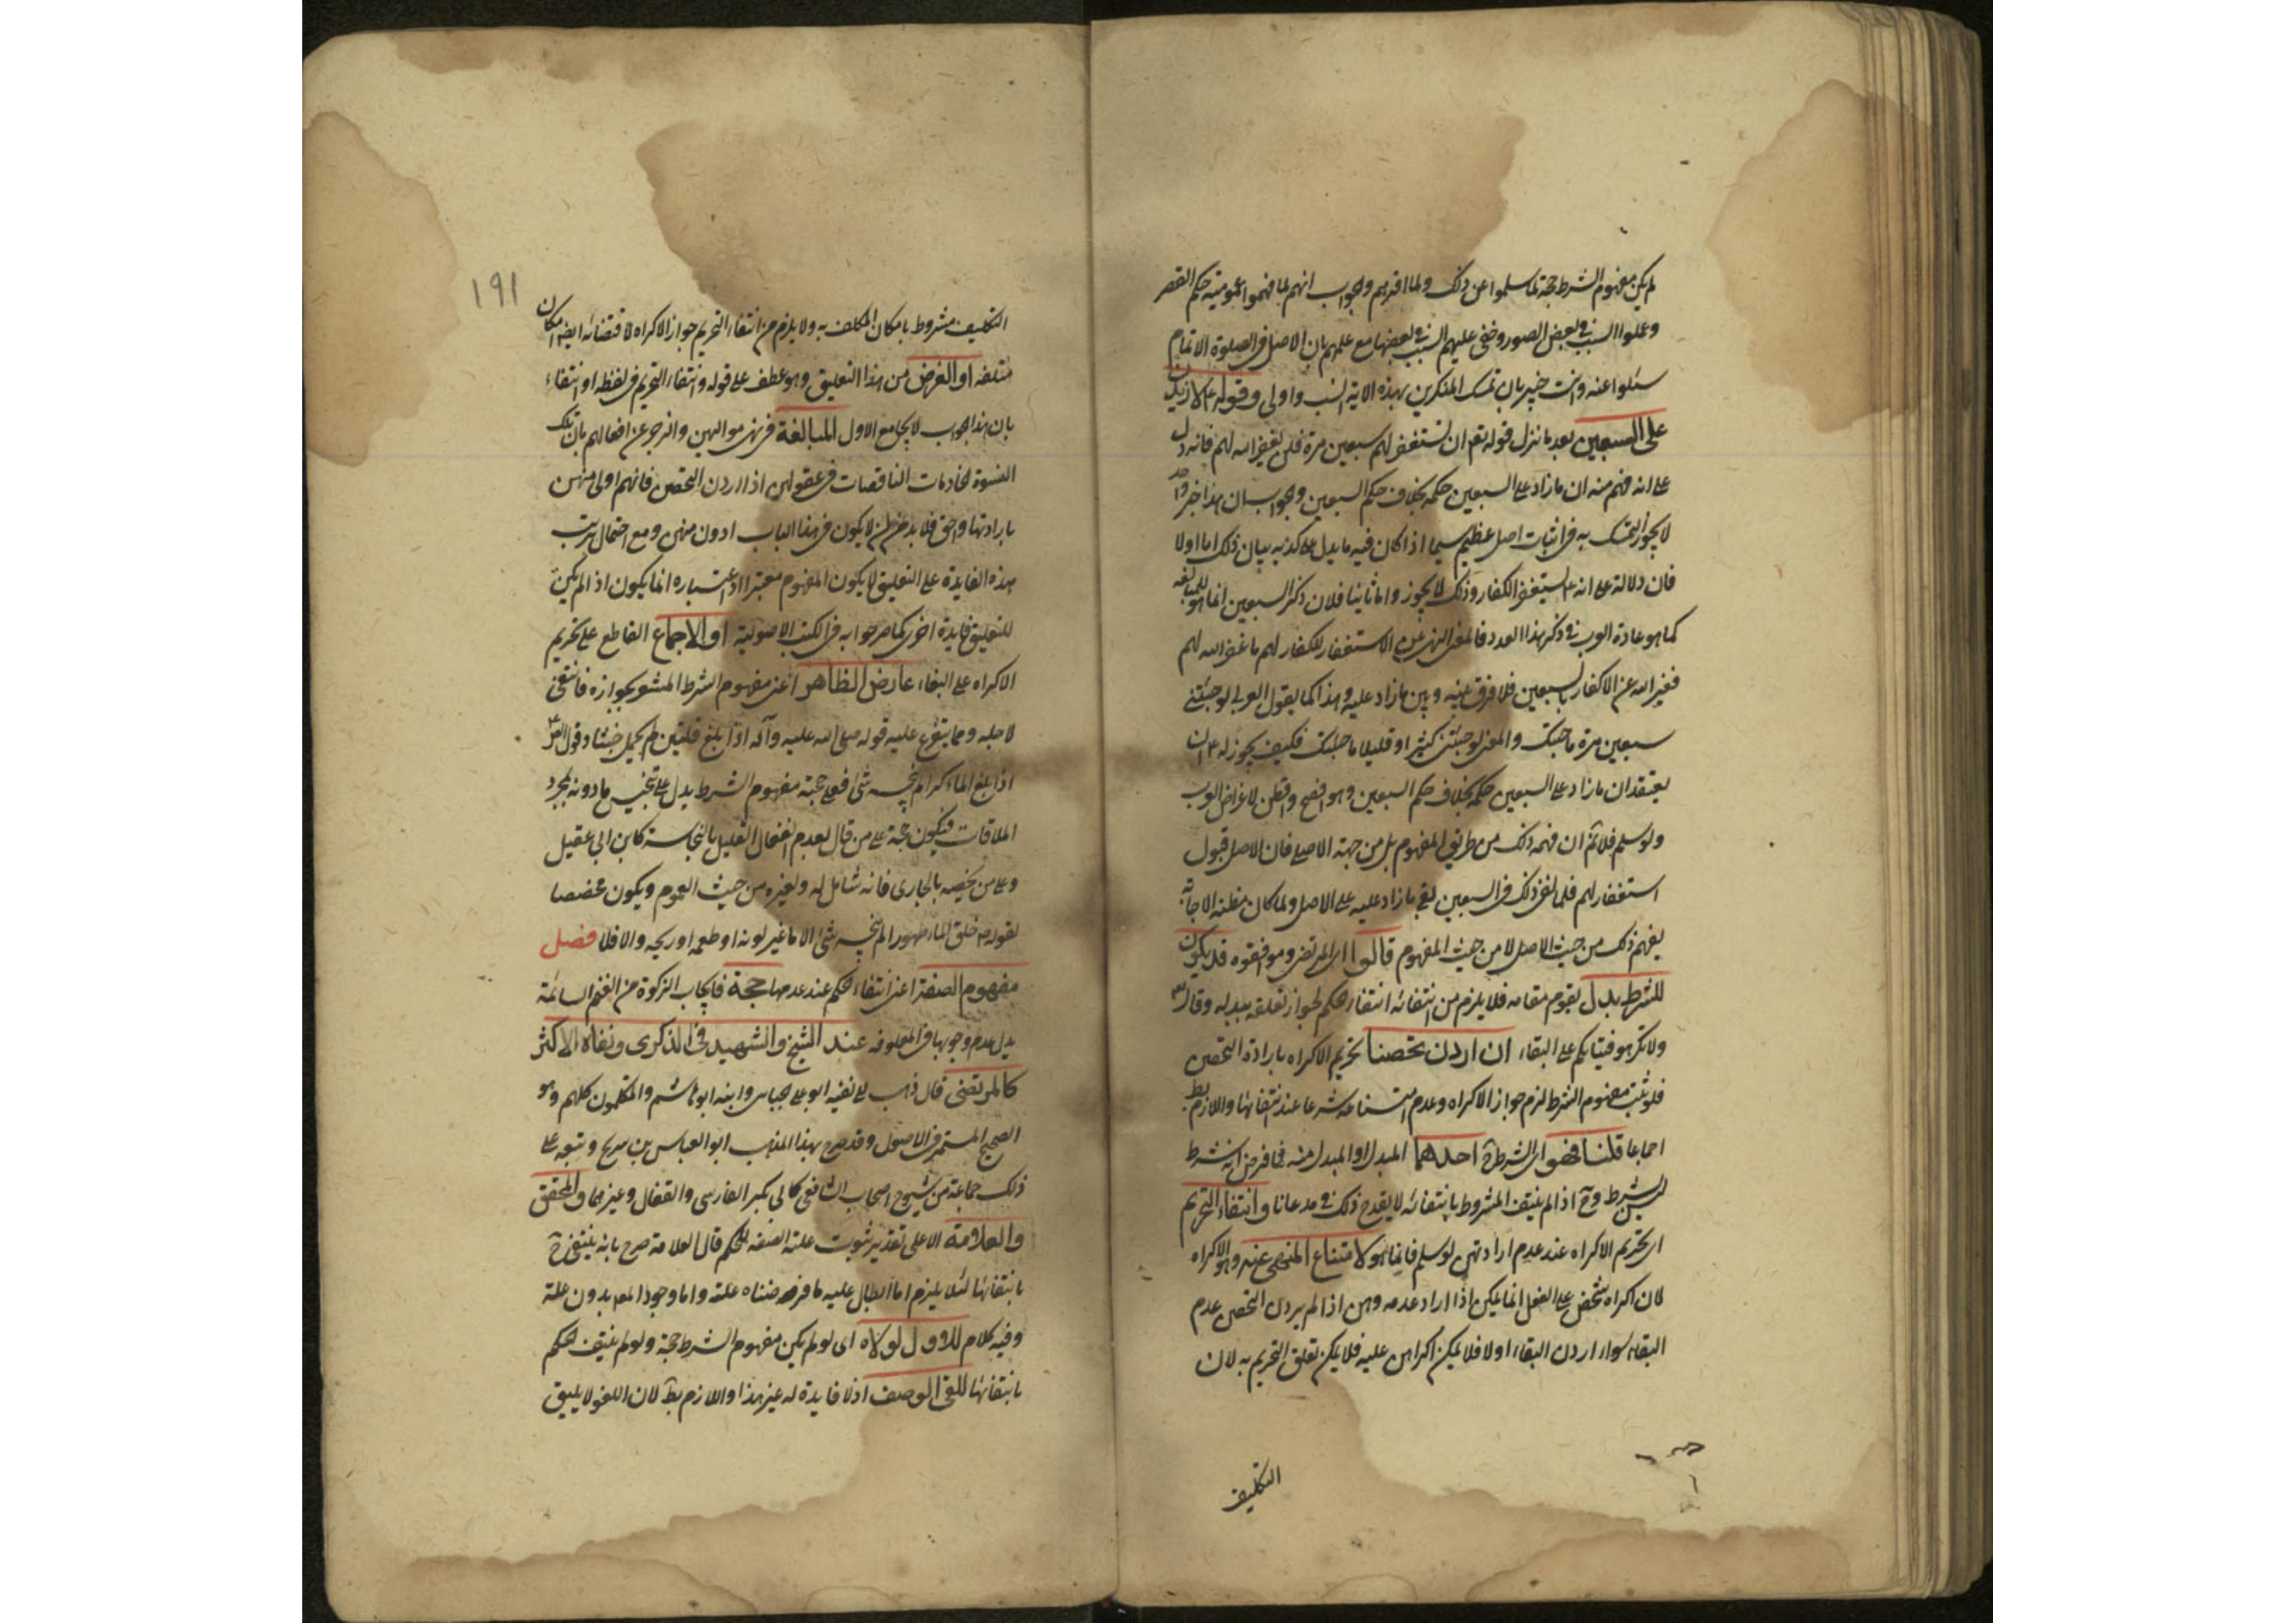 لم يكن مفهوم الشرط حجة لما سلموا عن ذلك ولما اقرهم والجواب انهم لما فهموا عمومية حكم القصر
وعملوا السبب في بعض الصور وخفى عليهم السبب في بعضها مع علمهم بان الاصل في الصلوة الاتمام
سئلوا عنه وانت خبير بان تمسك المنكرين بهذه الاية انسب واولى وقوله ع لازيدن
على السبعين بعد ما نزل قوله تع ان تستغفر لهم سبعين مرة فلن يغفر الله لهم فانه دل
على انه فهم منه ان ما زاد على السبعين حكمه بخلاف حكم السبعين والجواب ان هذا خبر واحد
لا يجوز التمسك به في اثبات اصل عظيم سيما اذا كان فيه ما يدل على كذبه بيان ذلك اما اولا
فان دلالة على انه ع يستغفر للكفار وذلك لا يجوز واما ثانيا فلان ذكر السبعين انما هو للمبالغة
كما هو عادة العرب في ذكر هذا العدد فالمعنى النهي عن الاستغفار للكفار لهم ما غفر الله لهم
فغير الله عن الاكفار بالسبعين فلا فرق بينه وبين ما زاد عليه وهذا كما يقول العربي لو جئتني
سبعين مرة ما جئتك والمعنى لو جئتني كثيرا او قليلا ما جئتك فكيف يجوز له ع ان
يعتقد ان ما زاد على السبعين حكمه بخلاف حكم السبعين وهو افصح وافطن لاغراض العرب
ولو سلم فلا ثم ان فهمه ذلك من طريق المفهوم بل من جهة الاصل فان الاصل قبول
استغفار لهم فلما نفى ذلك في السبعين بقى ما زاد عليه على الاصل ولما كان مظنة الاجابة
يفهم ذلك من حيث الاصل لا من حيث المفهوم قالوا اى المرتضى وموافقوه قد يكون
للشرط بدل يقوم مقامه فلا يلزم من انتفائه انتفاء الحكم لجواز تعلقه ببدله وقال تع
ولا تكرهوا فتياتكم على البغاء ان اردن تحصنا تحريم الاكراه بارادة التحصن
فلو ثبت مفهوم الشرط لزم جواز الاكراه وعدم امتناعه شرعا عند انتفائها واللازم بط
اجماعا قلنا فهو اى الشرط ح احدهما المبدل او المبدل منه فما فرض انه شرط
ليس بشرط وح اذا لم ينتف المشروط بانتفائه لا يقدح ذلك في مدعانا وانتفاء التحريم
اى تحريم الاكراه عند عدم ارادتهن لو سلم فانما هو لامتناع المنهى عنه وهو الاكراه
لان اكراه شخص على الفعل انما يمكن اذا اراد عدمه وهن اذا لم يردن التحصن عدم
البغاء سواء اردن البغاء اولا فلا يمكن اكراههن عليه فلا يمكن تعلق التحريم به لان
التكليف
١٩١
التكليف مشروط بامكان المكلف به ولا يلزم من انتفاء التحريم جواز الاكراه لاقتضائه ايضا امكان
متعلقه او الغرض من هذا التعليق وهو عطف على قوله وانتفاء التحريم في لفظه او انتفاء
بان هذا الجواب لا يجامع الاول المبالغة في نهى مواليهن والزجر عن افعالهم بان تلك
النسوة الخادمات الناقصات في عقولهن اذا اردن التحصن فانهم اولى منهن
بارادتها واحق فلا بد من ان لا يكون في هذا الباب ادون منهن ومع احتمال ترتب
هذه الفايدة على التعليق لا يكون المفهوم معتبرا اذ اعتباره انما يكون اذا لم يكن
للتعليق فايدة اخرى كما صرحوا به في الكتب الاصولية او الاجماع القاطع على تحريم
الاكراه على البغاء عارض الظاهر اعنى مفهوم الشرط المشعر بجوازه فانتفى
لاجله ومما يتفرع عليه قوله صلى الله عليه وآله اذا بلغ قلتين لم يحمل خبثا وقول الص ع
اذا بلغ الماء كرا لم ينجسه شئ فعلى حجية مفهوم الشرط يدل على تنجيس ما دونه بمجرد
الملاقات فيكون حجة على من قال بعدم انفعال القليل بالنجاسة كابن ابي عقيل
وعلى من يخصه بالجارى فانه شامل له ولغيره من حيث العموم ويكون مخصصا
لقوله ص خلق الماء طهورا لم ينجسه شئ الا ما غير لونه او طعمه او ريحه والا فلا فصل
مفهوم الصفة اعنى انتفاء الحكم عند عدمها حجة فايجاب الزكوة من الغنم السائمة
يدل عدم وجوبها في المعلوفه عند الشيخ والشهيد في الذكرى ونفاه الاكثر
كالمرتضى قال ذهب الى نفيه ابو على جبائى وابنه ابو هاشم والمتكلمون كلهم وهو
الصحيح المستمر في الاصول وقد صرح بهذا المذهب ابو العباس بن سريح وتبعه على
ذلك جماعة من شيوخ اصحاب الشافعى كابى بكر الفارسى والقفال وغيرهما والمحقق
والعلامة الا على تقدير ثبوت علته الصفه للحكم قال العلامة صرح بانه ينتفى ح
بانتفائها لئلا يلزم اما ابطال عليه ما فرضناه علته واما وجود المعه بدون علته
وفيه كلام للاول لولاه اى لو لم يكن مفهوم الشرط حجة ولو لم ينتف الحكم
بانتفائها للغى الوصف اذ لا فايدة له غير هذا واللازم بط لان اللغو لا يليق